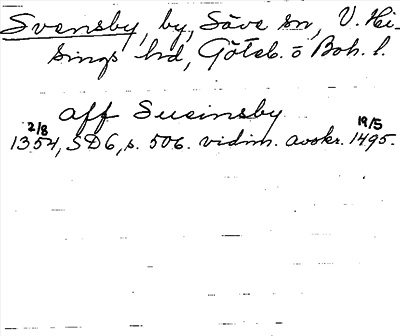 Svensby, by, Säve sn, V. Hi-
sings hd, Göteb. o Boh. l.
aff Sueinsby
2/8 19/5
1354, SD6, s. 506. vidim. avskr. 1495.